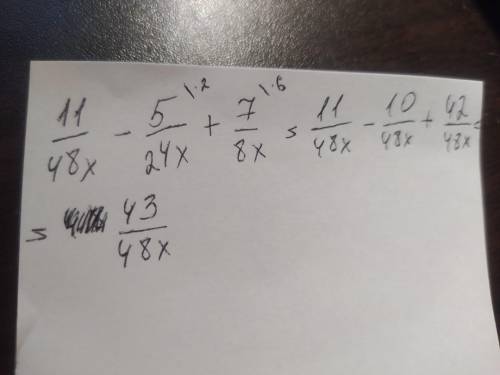 11/48x - 5/24x \·2 + 7/8x \·6 = 11/48x - 10/48x + 42/48x =
= 43/48x